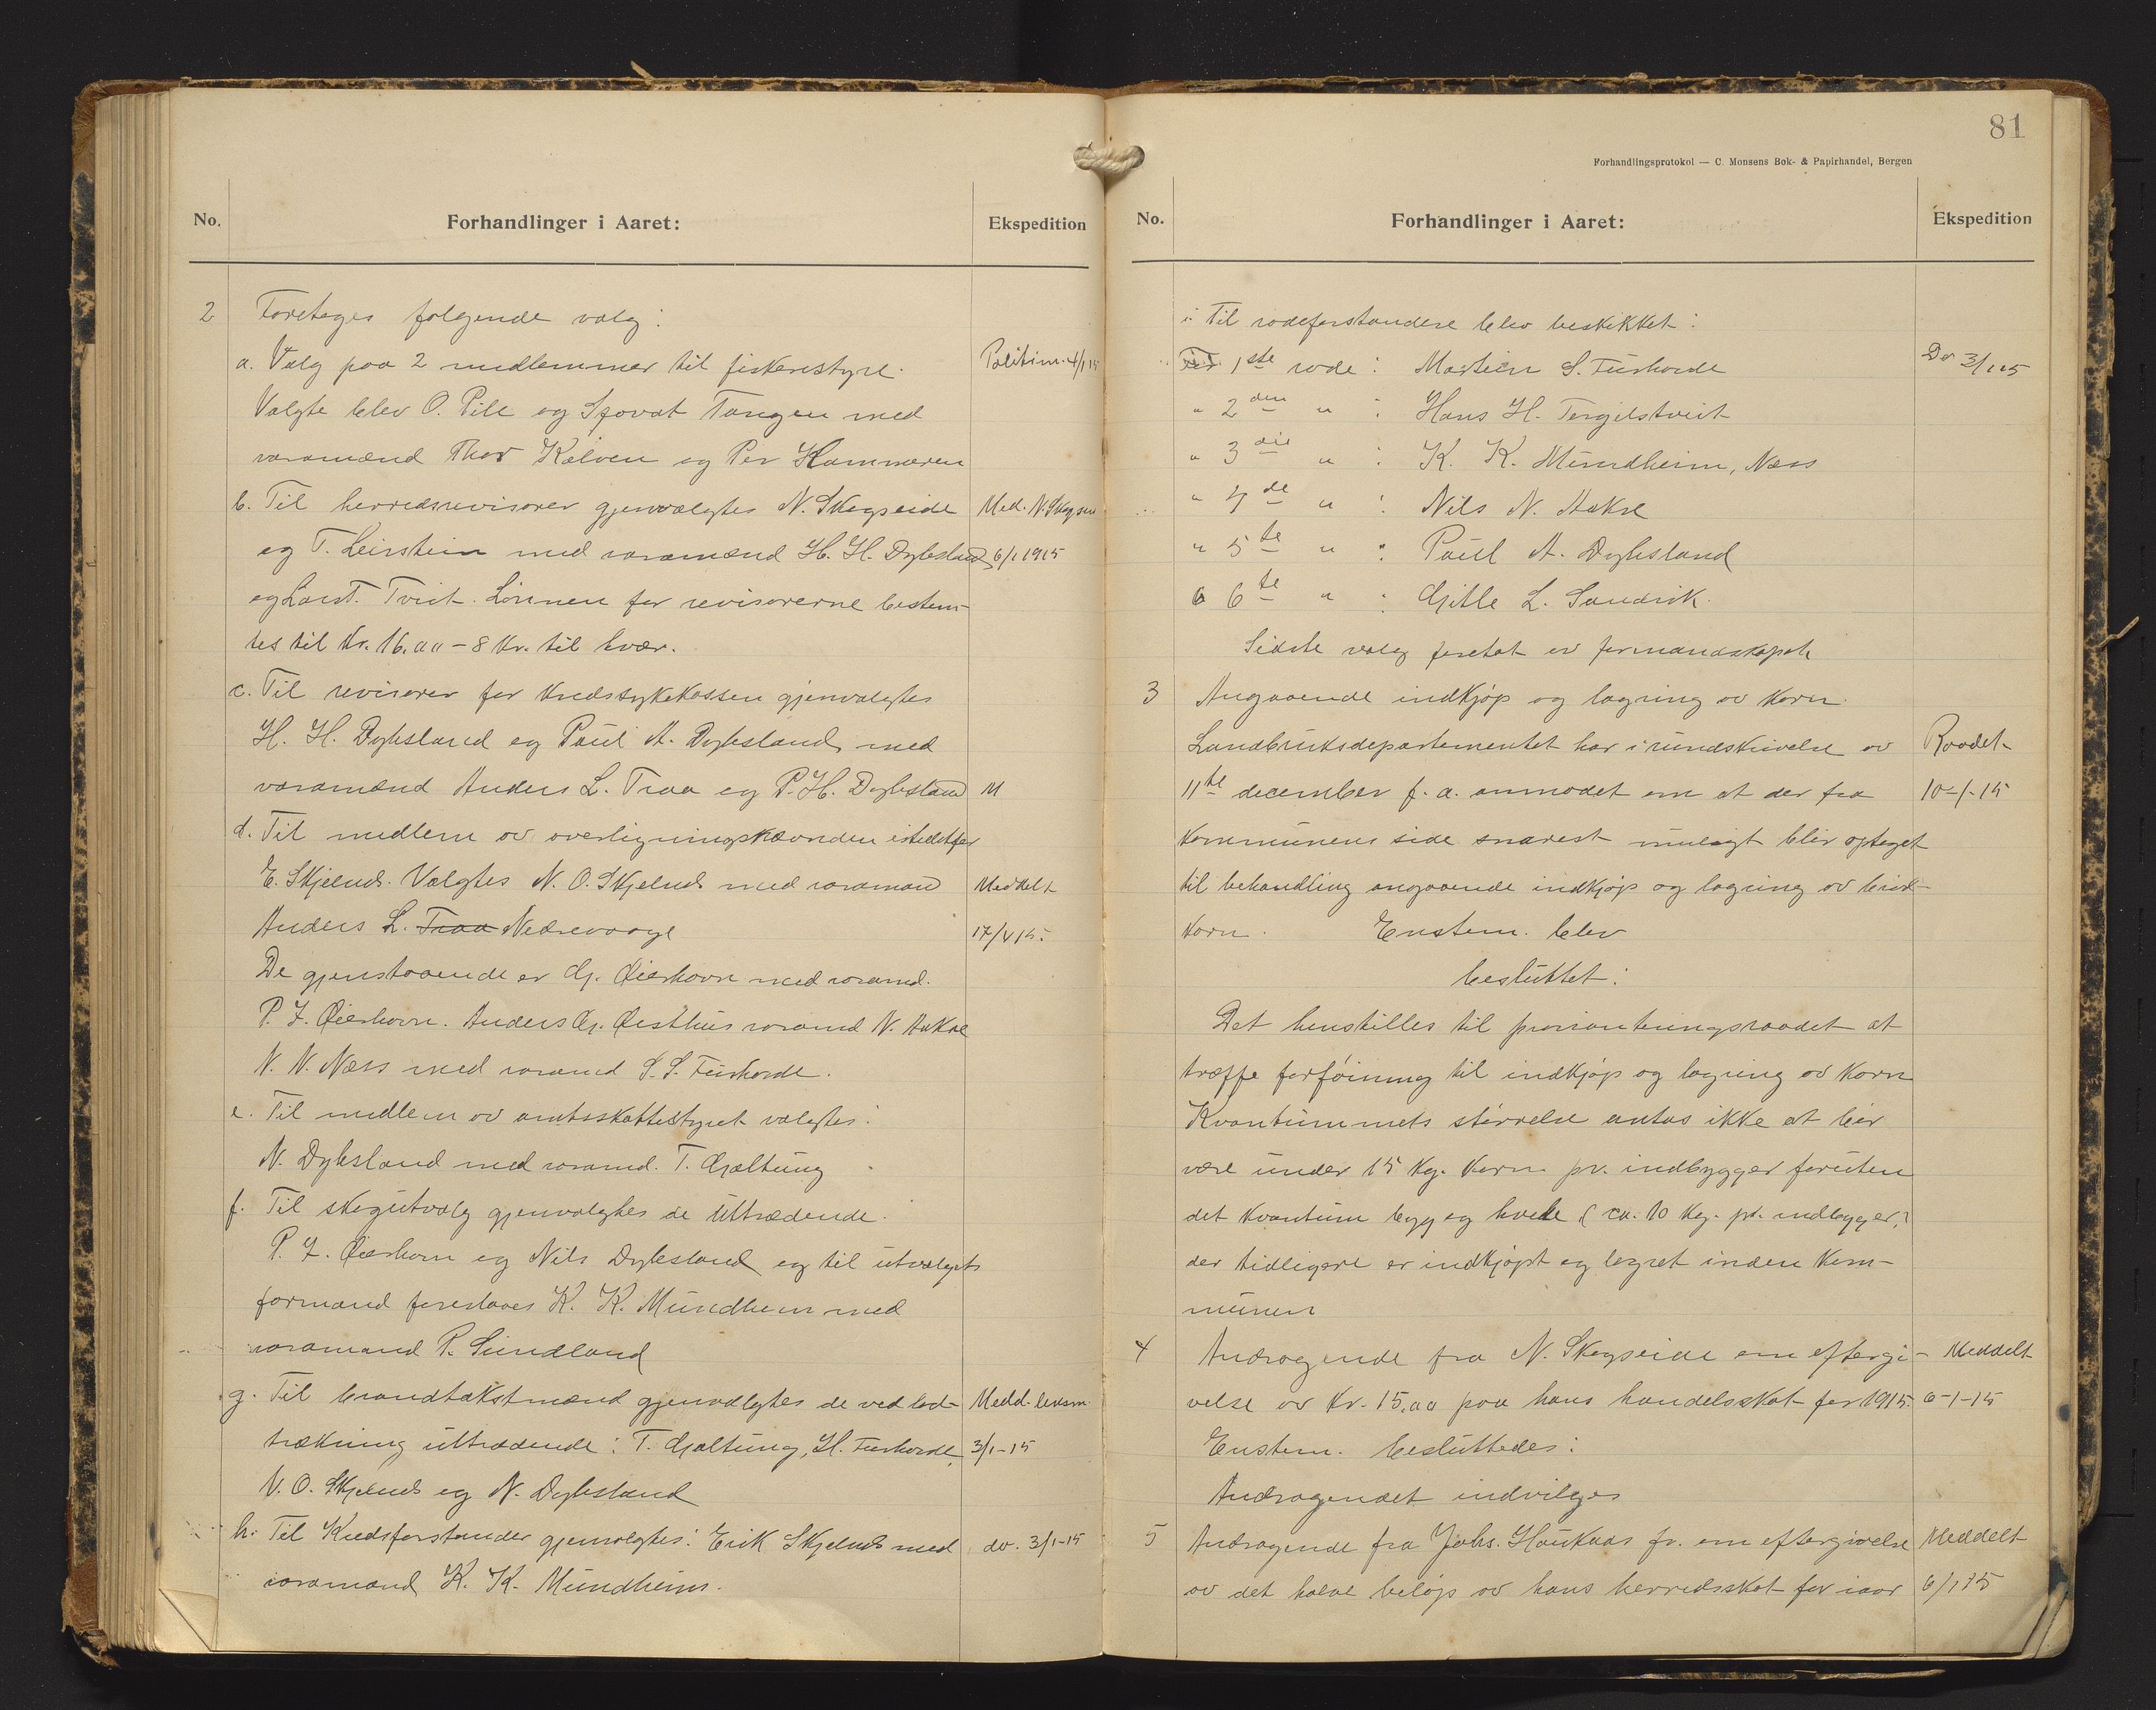 No.
Forhandlinger i Aaret:
Ekspedition
2 Foretages følgende valg:
a. Valg paa 2 medlemmer til fiskeristyre. Politim. 4/1 15
Valgte blev O. Pile og Sjovat Tangen med
varamænd Thor Kalven og Per Kammaren
b. Til herredsrevisorer gjenvalgtes N. Skogseide Med. N. Skogsei
og T. Leirstein med varamænd H. H. Dybsland 6/1 1915
og Tveit. Lönnen for revisorerne bestem-
tes til Kr. 16.00 - 8 Kr. til hvær.
c. Til revisorer for Kredssykekassen gjenvalgtes
H. H. Dybsland og Paul A. Dybsland med
varamænd Anders L. Traa og P. H. Dybsland M
d. Til medlem av overligningsnævnden istedetfor
E. Skjelnes. Valgtes N. O. Skjelnes med varamand Meddelt
Anders L. Traa Nedrevaage 17/4 15.
De gjenstaaende er G. Øierhavn med varamd.
P. J. Øierhavn. Anders G. Østhus varamd N. Aakre
N. N. Næss med varamd S. S. Furhovde.
e. Til medlem av amtsskattestyret valgtes:
N. Dybsland med varamd. T. Gjaltung
f. Til skogutvalg gjenvalgtes de uttrædende.
P. J. Øierhavn og Nils Dybsland og til utvalgets
formand foreslaaes K. K. Mundheim med
varamand P. Sundland
g. Til brandtakstmænd gjenvalgtes de ved lod- Medd. lensm.
trækning uttrædende: T. Gjaltung, H. Furhovde, 3/1-15
N. O. Skjelnes og N. Dybsland
h. Til Kredsforstander gjenvalgtes: Erik Skjelnes med do. 3/1-15
varamand K. K. Mundheim.
81
Forhandlingsprotokol — C. Monsens Bok- & Papirhandel, Bergen
No.
Forhandlinger i Aaret:
Ekspedition
i. Til rodeforstandere blev beskikket:
Til 1ste rode: Martin S. Furhovde Do 3/1 15
" 2den " : Hans H. Torgilstveit
" 3die " : K. K. Mundheim, Næss
" 4de " : Nils N. Aakre
" 5te " : Paul A. Dybsland
6te " : Gitle L. Sandvik.
Sidste valg foretat av formandskapet
3 Angaaende indkjøp og lagring av korn.
Landbruksdepartementet har i rundskrivelse av Raadet
11te december f. a. anmodet om at der fra 10-1-15
kommunens side snarest mulegt blir optaget
til behandling angaaende indkjøp og lagring av brød-
korn. Enstem. blev
besluttet:
Det henstilles til provianteringsraadet at
træffe forføining til indkjøp og lagring av korn
Kvantummets størrelse antas ikke at bør
være under 15 kg. korn pr. indbygger foruten
det kvantum bygg og hvete (ca. 10 kg. pr. indbygger,)
der tidligere er indkjøpt og lagret inden kom-
munen
4 Andragende fra N. Skogseide om eftergi- Meddelt
velse av Kr. 15.00 paa hans handelsskat for 1915. 6-1-15
Enstem. besluttedes:
Andragendet indvilges
5 Andragende fra Johs. Haukaas jr. om eftergivelse Meddelt
av det halve beløp av hans herredsskat for iaar 6/1 15